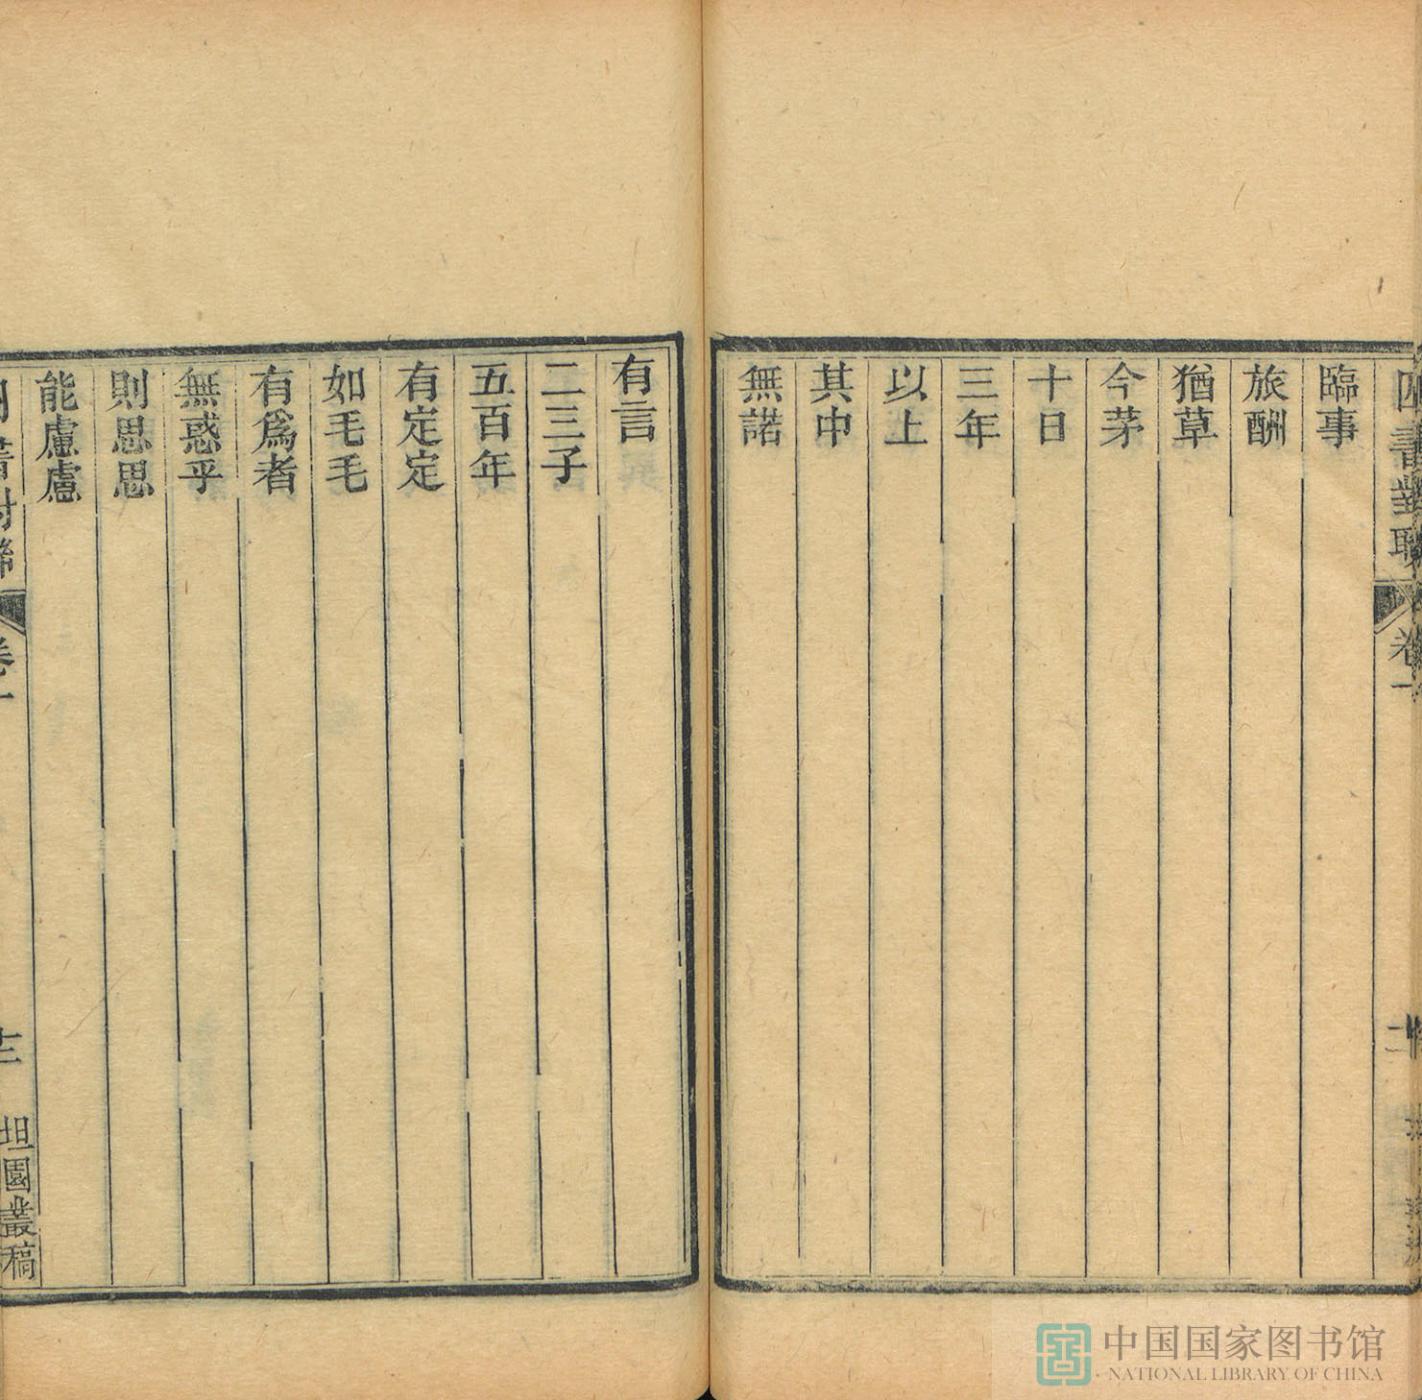 四書對聯 卷一
臨事
旅酬
猶草
今茅
十日
三年
以上
其中
無諾
有言
二三子
五百年
有定定
如毛毛
有爲者
無惑乎
則思思
能慮慮
四書對聯 卷一 十三 坦園叢稿
中国国家图书馆
NATIONAL LIBRARY OF CHINA